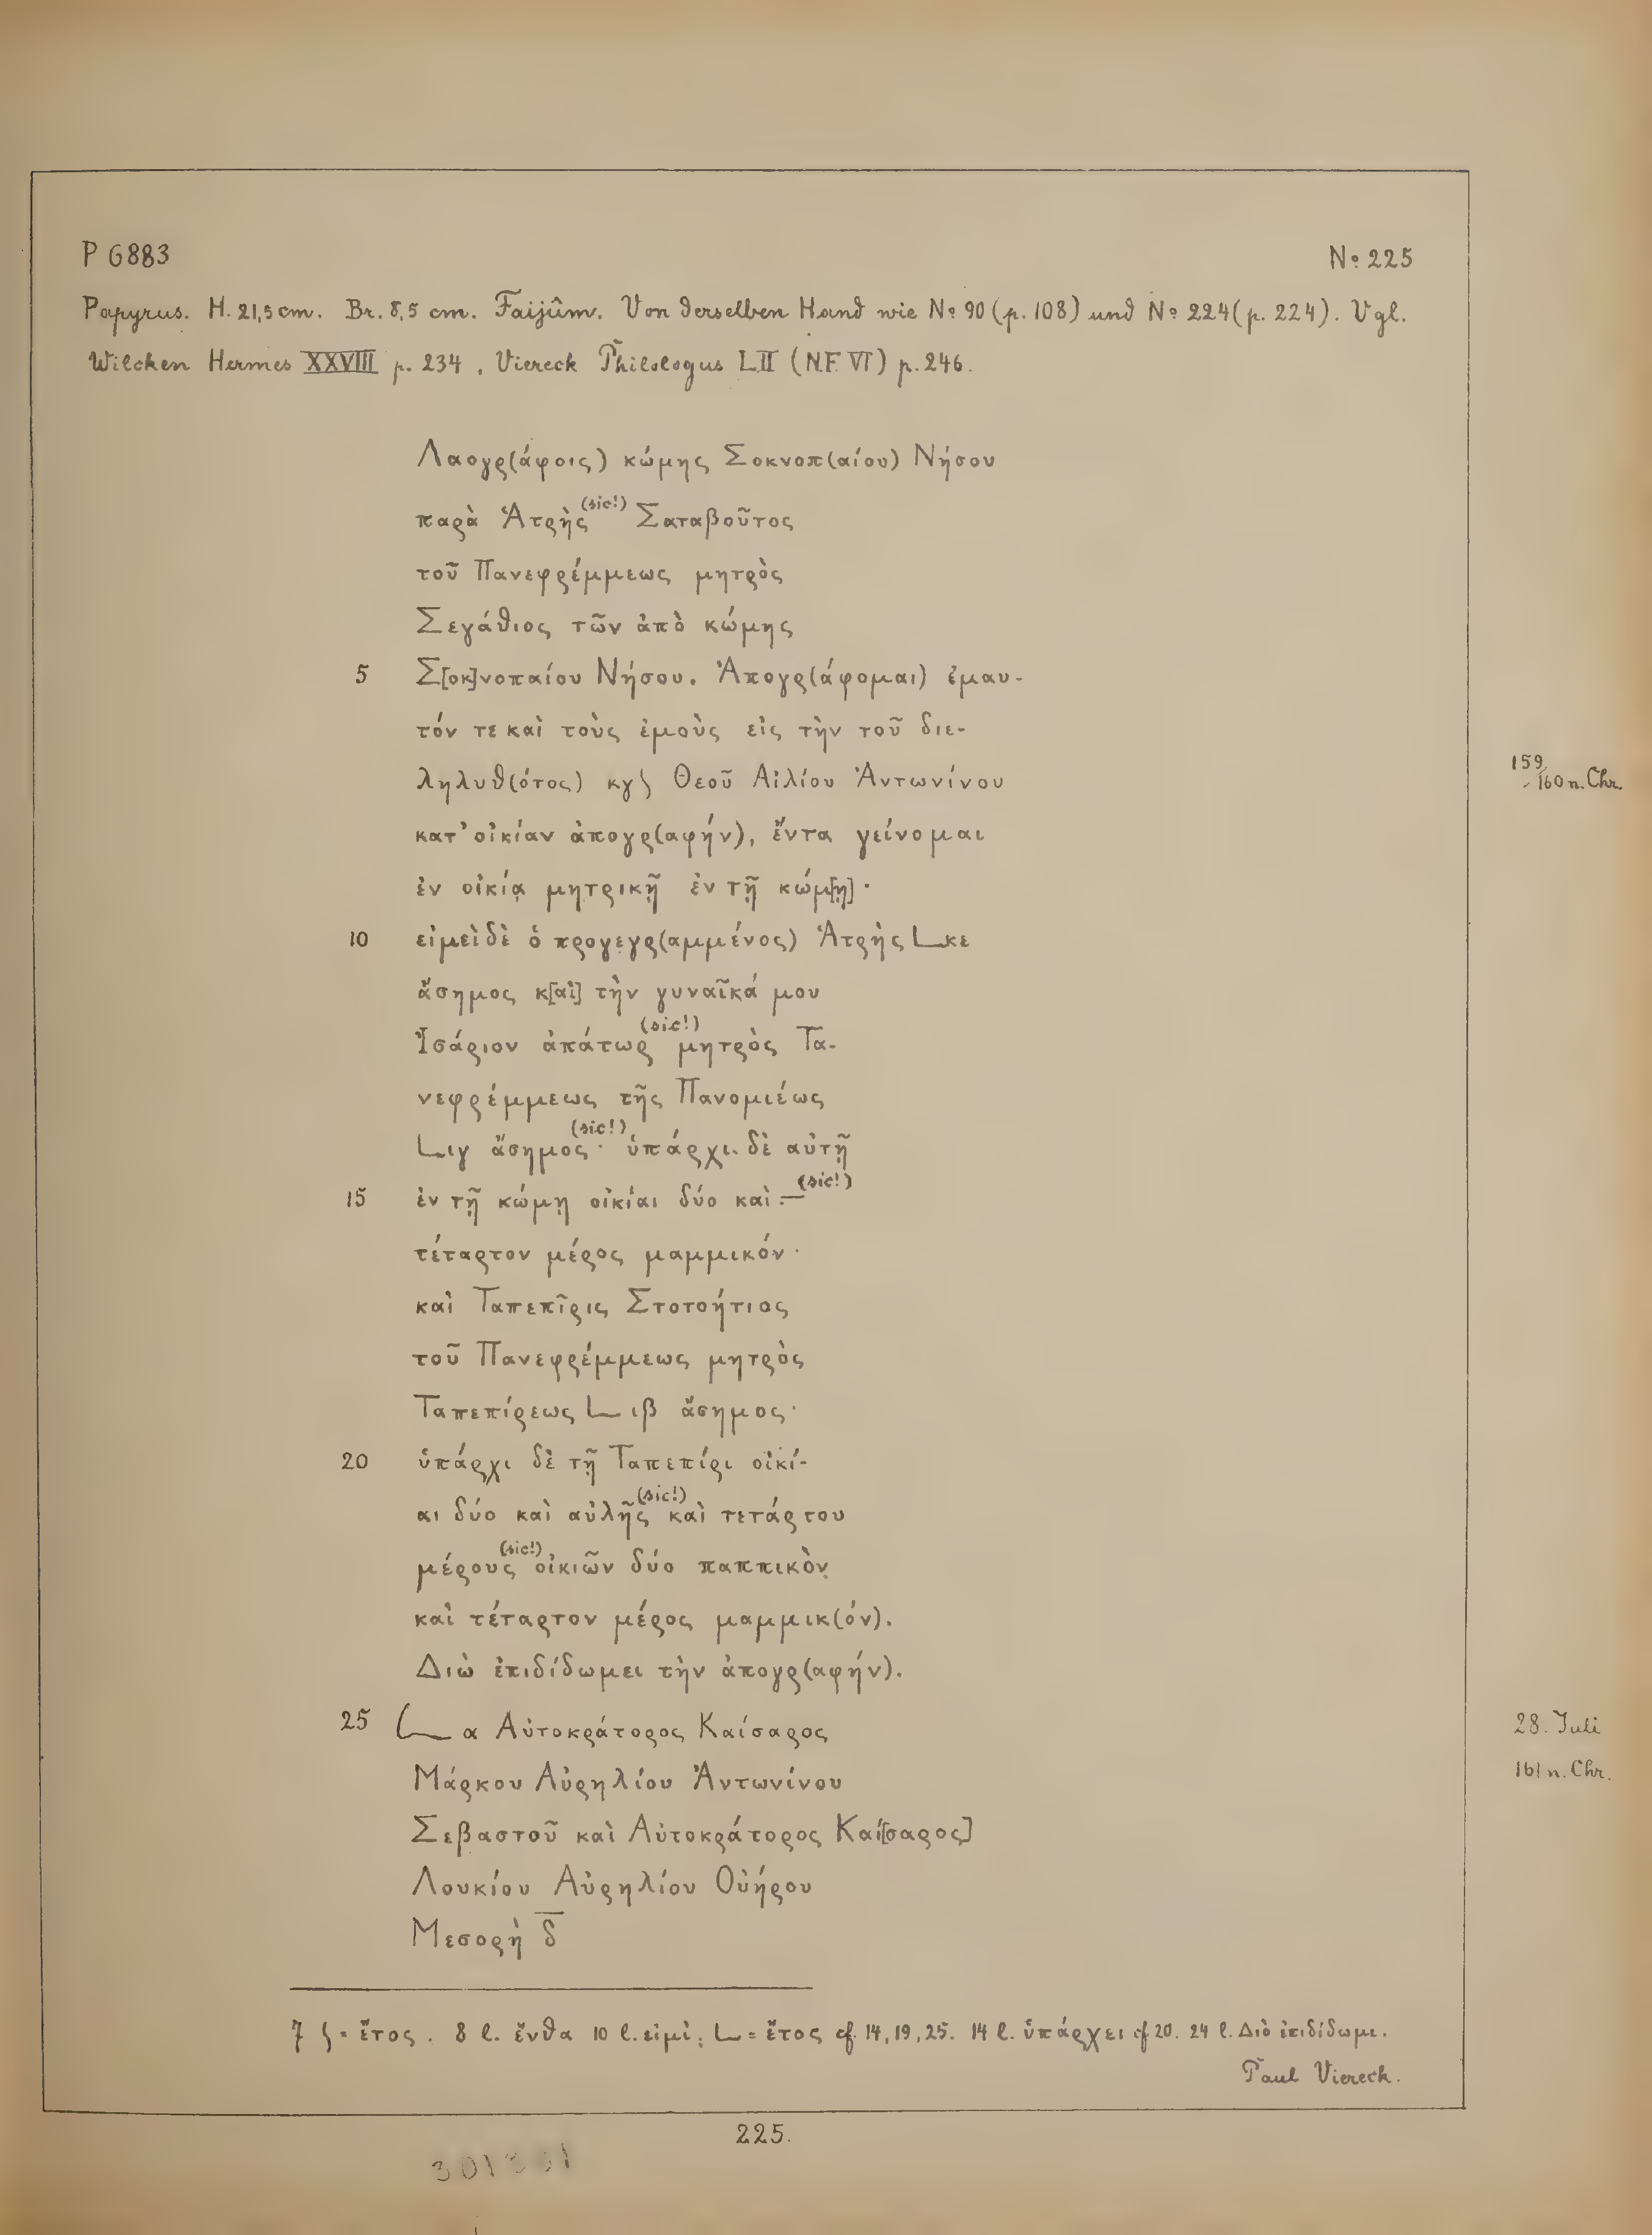 P 6883
Nº 225
Papyrus. H. 21,5 cm. Br. 8,5 cm. Faijûm. Von derselben Hand wie Nº 90 (p. 108) und Nº 224 (p. 224). Vgl.
Wilcken Hermes XXVIII p. 234, Viereck Philologus LII (N.F. VI) p. 246.
Λαογρ(άφοις) κώμης Σοκνοπ(αίου) Νήσου
παρὰ Ἁτρὴς (sic!) Σαταβοῦτος
τοῦ Πανεφρέμμεως μητρὸς
Σεγάθιος τῶν ἀπὸ κώμης
5 Σ[οκ]νοπαίου Νήσου. Ἀπογρ(άφομαι) ἐμαυ-
τόν τε καὶ τοὺς ἐμοὺς εἰς τὴν τοῦ διε-
ληλυθ(ότος) κγ ʃ Θεοῦ Αἰλίου Ἀντωνίνου
159/160 n. Chr.
κατ' οἰκίαν ἀπογρ(αφήν), ἔντα γείνομαι
ἐν οἰκίᾳ μητρικῇ ἐν τῇ κώμ[ῃ] ·
10 εἰμεὶ δὲ ὁ προγεγρ(αμμένος) Ἁτρὴς L κε
ἄσημος κ[αὶ] τὴν γυναῖκά μου
Ἰσάριον ἀπάτωρ (sic!) μητρὸς Τα-
νεφρέμμεως τῆς Πανομιέως
L ιγ ἄσημος (sic!) · ὑπάρχι δὲ αὐτῇ
15 ἐν τῇ κώμῃ οἰκίαι δύο καὶ ·— (sic!)
τέταρτον μέρος μαμμικόν ·
καὶ Ταπεπῖρις Στοτοήτιος
τοῦ Πανεφρέμμεως μητρὸς
Ταπεπίρεως L ιβ ἄσημος ·
20 ὑπάρχι δὲ τῇ Ταπεπίρι οἰκί-
αι δύο καὶ αὐλῆς (sic!) καὶ τετάρτου
μέρους (sic!) οἰκιῶν δύο παππικὸν
καὶ τέταρτον μέρος μαμμικ(όν).
Διὼ ἐπιδίδωμει τὴν ἀπογρ(αφήν).
25 L α Αὐτοκράτορος Καίσαρος
28. Juli
Μάρκου Αὐρηλίου Ἀντωνίνου
161 n. Chr.
Σεβαστοῦ καὶ Αὐτοκράτορος Καί[σαρος]
Λουκίου Αὐρηλίου Οὐήρου
Μεσορὴ δ̅
7 ʃ = ἔτος. 8 l. ἔνθα 10 l. εἰμὶ; L = ἔτος cf. 14, 19, 25. 14 l. ὑπάρχει cf 20. 24 l. Διὸ ἐπιδίδωμι.
Paul Viereck.
225.